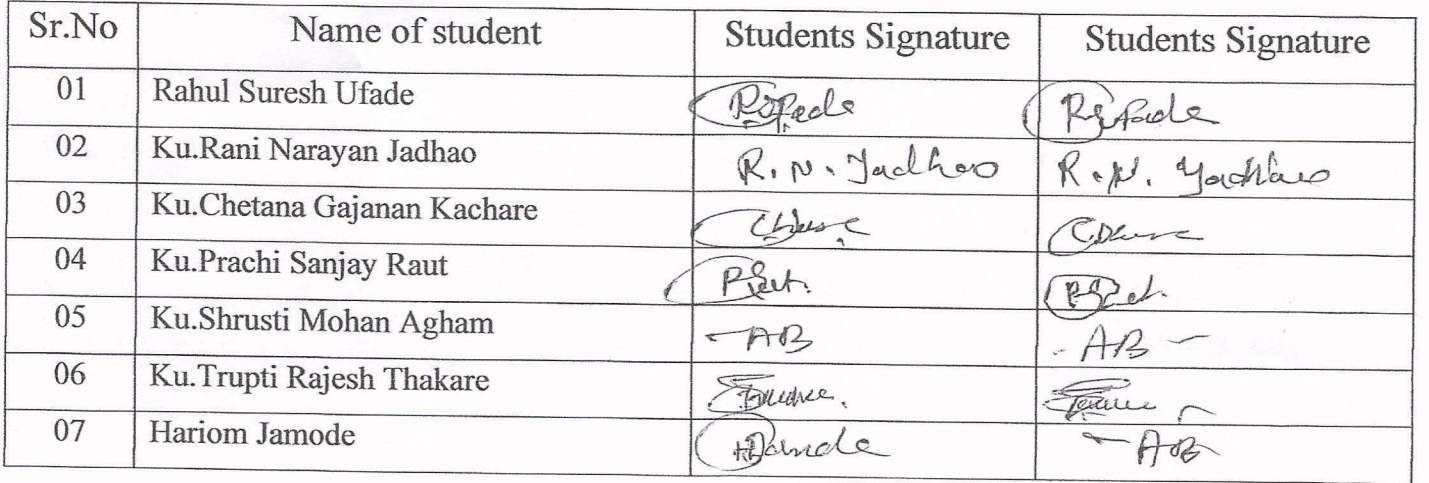 Sr.No Name of student Students Signature Students Signature
01 Rahul Suresh Ufade
02 Ku.Rani Narayan Jadhao R. N. Jadhao R. N. Jadhao
03 Ku.Chetana Gajanan Kachare
04 Ku.Prachi Sanjay Raut
05 Ku.Shrusti Mohan Agham - AB - AB -
06 Ku.Trupti Rajesh Thakare
07 Hariom Jamode - AB